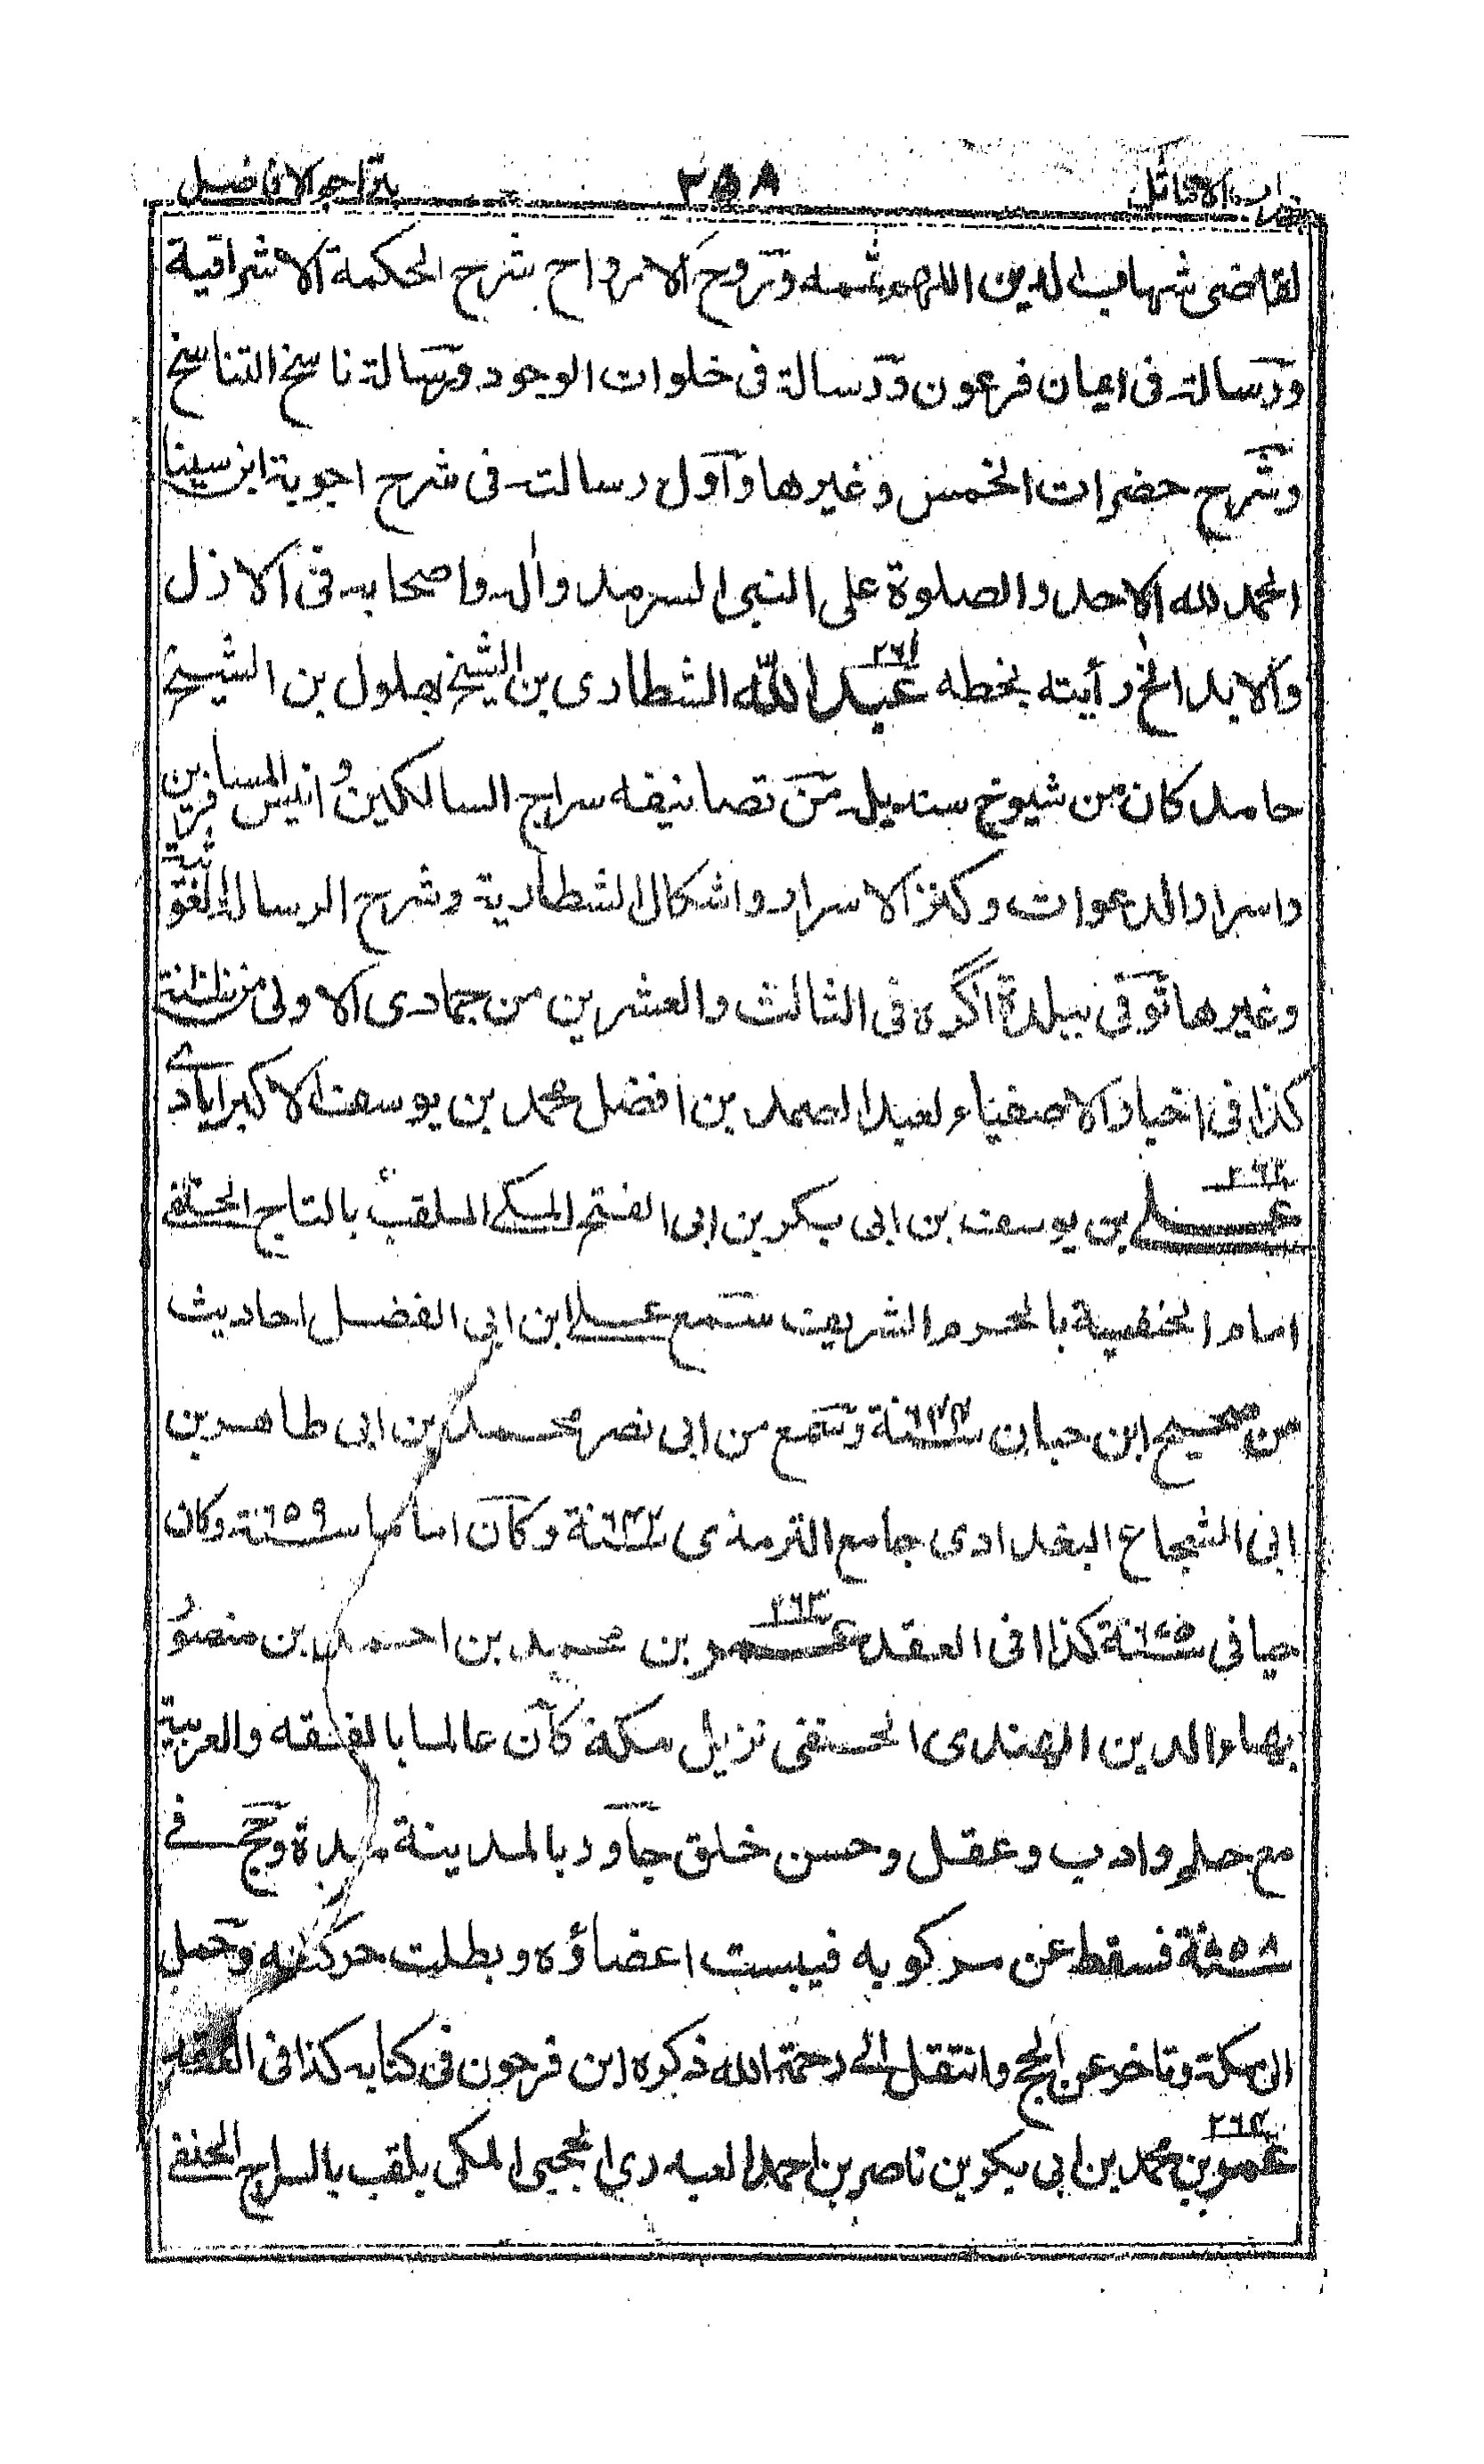 خير الاماثل ٢٥٨ بتراجم الافاضل
لقاضى شهاب الدين اللهم شمه وتروح الارواح شرح الحكمة الاشراقية
ورسالة فى ايمان فرعون ورسالة فى خلوات الوجود ورسالة ناسخ التناسخ
وشرح حضرات الخمس وغيرها واول رسالته فى شرح اجوبة ابن سينا
الحمد لله الاحد والصلوة على النبى السرمد واله واصحابه فى الازل
والابد الخ رأيته بخطه ٢٦١ عبد الله الشطارى بن الشيخ بهلول بن الشيخ
حامد كان من شيوخ سنديله من تصانيفه سراج السالكين وانيس المسافرين
واسرار الدعوات وكنز الاسرار واشكال الشطارية وشرح الرسالة الغوثية
وغيرها توفى ببلدة اگره فى الثالث والعشرين من جمادى الاولى من سنة
كذا فى اخبار الاصفياء لعبد الصمد بن افضل محمد بن يوسف الاكبرابادى
٢٦٢ على بن يوسف بن ابى بكر بن ابى الفتح المكى الملقب بالتاج الحنفى
امام الحنفية بالحرم الشريف سمع على ابن ابى الفضل احاديث
من صحيح ابن حبان سنة وسمع من ابى نصر محمد بن ابى طاهر بن
ابى الشجاع البغدادى جامع الترمذى سنة وكان اماما سنة ٦٥٩ وكان
حيا فى سنة كذا فى العقد ٢٦٣ عمر بن محمد بن احمد بن منصور
بهاء الدين الهندى الحنفى نزيل مكة كان عالما بالفقه والعربية
مع حلم وادب وعقل وحسن خلق جاور بالمدينة مدة وحج فى
سنة ٧٥٨ فسقط عن مركوبه فيبست اعضاؤه وبطلت حركته وحمل
الى مكة وتاخر عن الحج وانتقل الى رحمة الله ذكره ابن فرحون فى كتابه كذا فى العقد
٢٦٤ عمر بن محمد بن ابى بكر بن ناصر بن احمد العبدرى الحجبى المكى يلقب بالسراج الحنفى